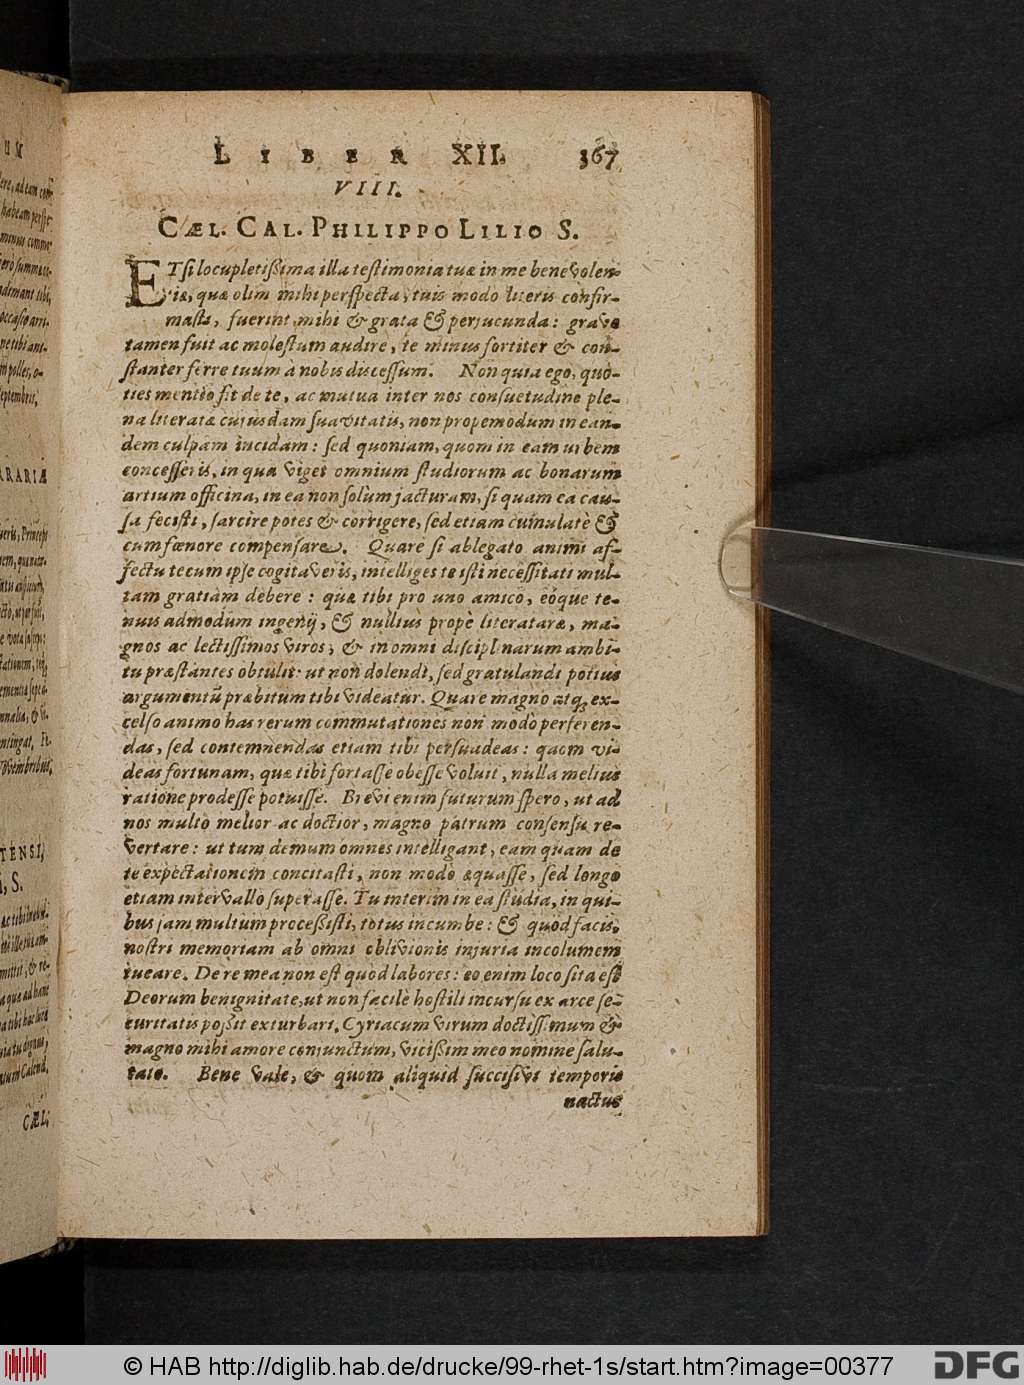 LIBER XII. 367
VIII.
CÆL. CAL. PHILIPPO LILIO S.
ETsi locupletißima illa testimonia tuæ in me benevolen-
tiæ, quæ olim mihi perspecta, tuis modo literis confir-
masti, fuerint mihi & grata & perjucunda: grave
tamen fuit ac molestum audire, te minus fortiter & con-
stanter ferre tuum à nobis discessum. Non quia ego, quo-
ties mentio fit de te, ac mutua inter nos consuetudine ple-
na literatæ cujusdam suavitatis, non propemodum in ean-
dem culpam incidam: sed quoniam, quom in eam urbem
concesseris, in qua viget omnium studiorum ac bonarum
artium officina, in ea non solùm jacturam, si quam ea cau-
sa fecisti, sarcire potes & corrigere, sed etiam cumulatè &
cum fœnore compensare. Quare si ablegato animi af-
fectu tecum ipse cogitaveris, intelliges te isti necessitati mul-
tam gratiam debere: quæ tibi pro uno amico, eóque te-
nuis admodum ingenij, & nullius propè literaturæ, ma-
gnos ac lectissimos viros, & in omni disciplinarum ambi-
tu præstantes obtulit: ut non dolendi, sed gratulandi potius
argumentũ præbitum tibi videatur. Quare magno atq; ex-
celso animo has rerum commutationes non modò perferen-
das, sed contemnendas etiam tibi persuadeas: quom vi-
deas fortunam, quæ tibi fortasse obesse voluit, nulla melius
ratione prodesse potuisse. Brevi enim futurum spero, ut ad
nos multò melior ac doctior, magno patrum consensu re-
vertare: ut tum demum omnes intelligant, eam quam de
te expectationem concitasti, non modo æquasse, sed longo
etiam intervallo superasse. Tu interim in ea studia, in qui-
bus jam multum proceßisti, totus incumbe: & quod facis,
nostri memoriam ab omni oblivionis injuria incolumem
tueare. De re mea non est quod labores: eo enim loco sita est
Deorum benignitate, ut non facilè hostili incursu ex arce se-
curitatis poßit exturbari. Cyriacum virum doctissimum &
magno mihi amore conjunctum, vicißim meo nomine salu-
tato. Bene vale, & quom aliquid succisivi temporis
nactus
CÆL.
© HAB http://diglib.hab.de/drucke/99-rhet-1s/start.htm?image=00377
DFG